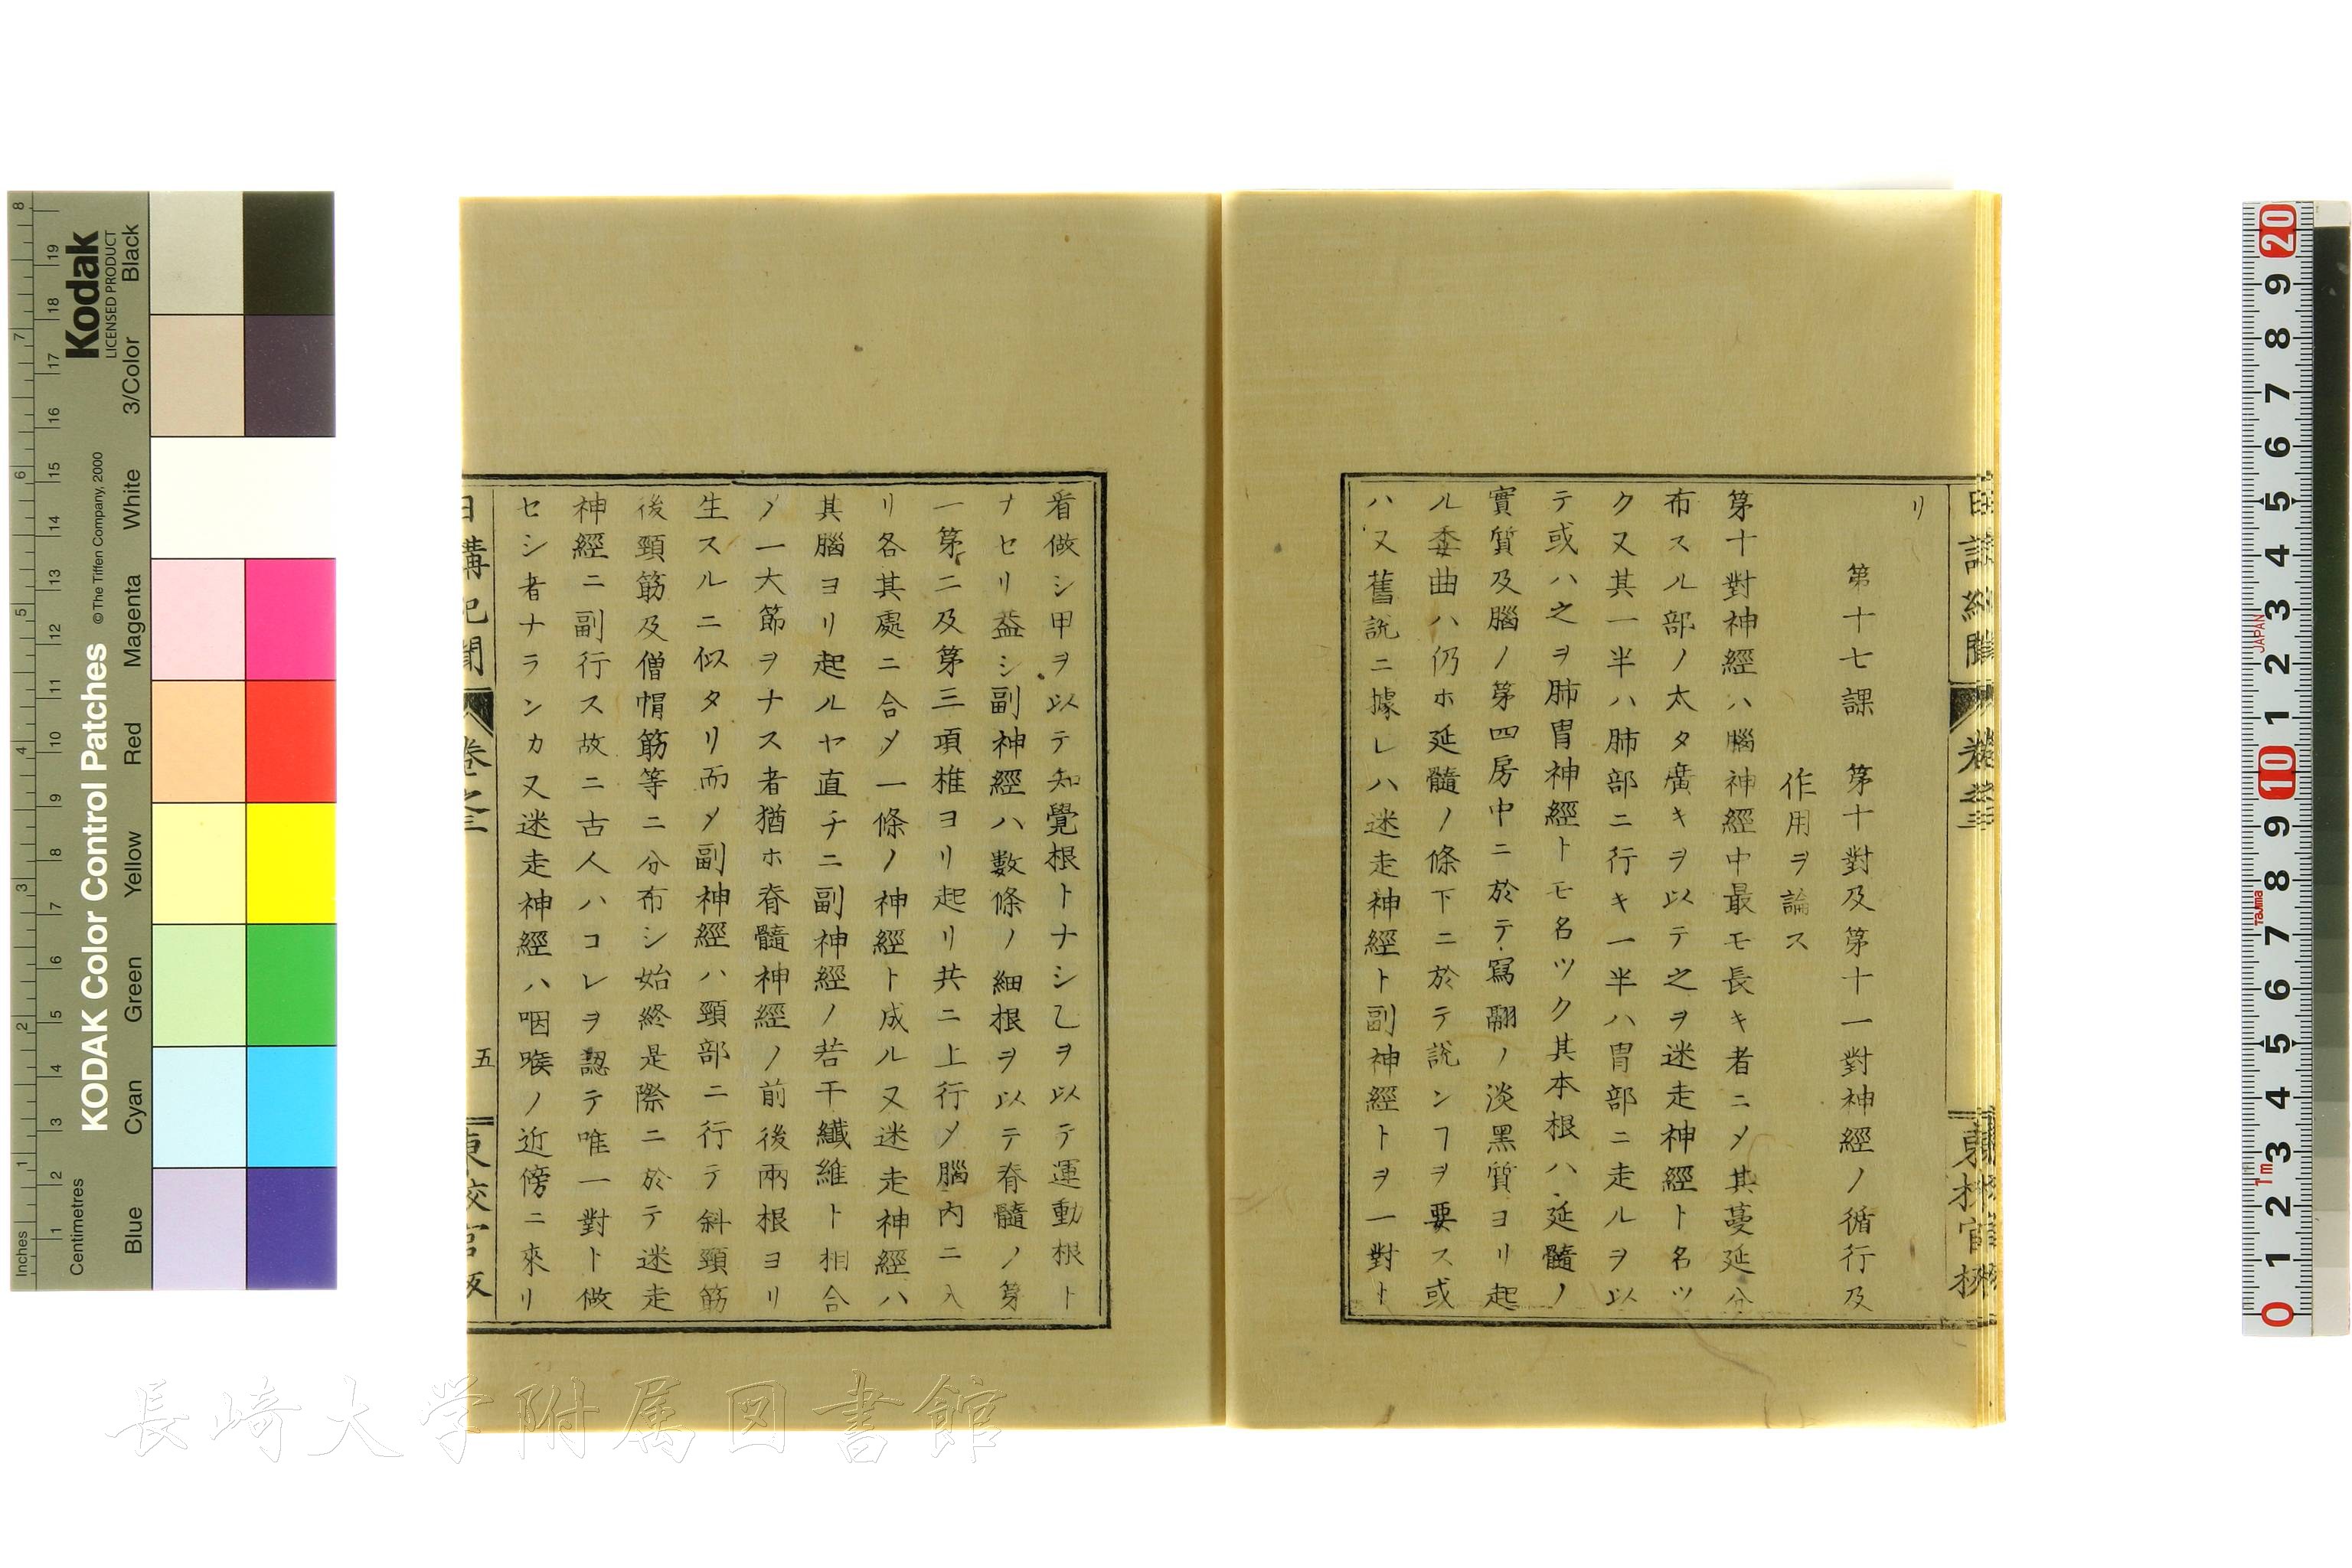 リ
第十七課　第十對及第十一對神經ノ循行及
作用ヲ論ス
第十對神經ハ腦神經中最モ長キ者ニメ其蔓延分
布スル部ノ太タ廣キヲ以テ之ヲ迷走神經ト名ツ
ク又其一半ハ肺部ニ行キ一半ハ胃部ニ走ルヲ以
テ或ハ之ヲ肺胃神經トモ名ツク其本根ハ延髓ノ
實質及腦ノ第四房中ニ於テ寫翮ノ淡黑質ヨリ起
ル委曲ハ仍ホ延髓ノ條下ニ於テ說ンヿヲ要ス或
ハ又舊說ニ據レハ迷走神經ト副神經トヲ一對ト
看做シ甲ヲ以テ知覺根トナシ乙ヲ以テ運動根ト
ナセリ蓋シ副神經ハ數條ノ細根ヲ以テ脊髓ノ第
一第二及第三項椎ヨリ起リ共ニ上行メ腦內ニ入
リ各其處ニ合メ一條ノ神經ト成ル又迷走神經ハ
其腦ヨリ起ルヤ直チニ副神經ノ若干纖維ト相合
メ一大節ヲナス者猶ホ脊髓神經ノ前後兩根ヨリ
生スルニ似タリ而メ副神經ハ頸部ニ行テ斜頸筋
後頸筋及僧帽筋等ニ分布シ始終是際ニ於テ迷走
神經ニ副行ス故ニ古人ハコレヲ認テ唯一對ト做
セシ者ナランカ又迷走神經ハ咽喉ノ近傍ニ來リ
日講記聞
卷之三
五
東校官板
Kodak
LICENSED PRODUCT
KODAK Color Control Patches
© The Tiffen Company, 2000
Inches
Centimetres
Blue
Cyan
Green
Yellow
Red
Magenta
White
3/Color
Black
JAPAN
Tajima
1m
長崎大学附属図書館